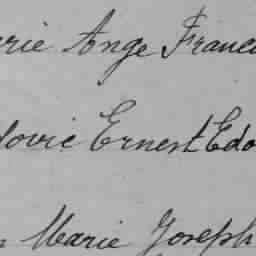 rie Ange Franc
lovic Ernest Edo
Marie Joseph